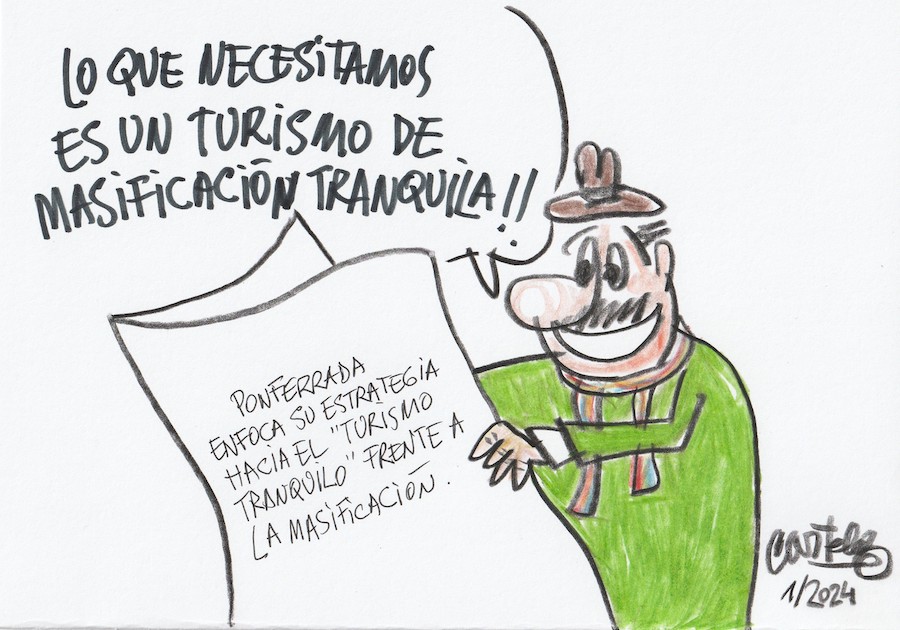 LO QUE NECESITAMOS
ES UN TURISMO DE
MASIFICACIÓN TRANQUILA!!
PONFERRADA
ENFOCA SU ESTRATEGIA
HACIA EL "TURISMO
TRANQUILO" FRENTE A
LA MASIFICACIÓN.
1/2024